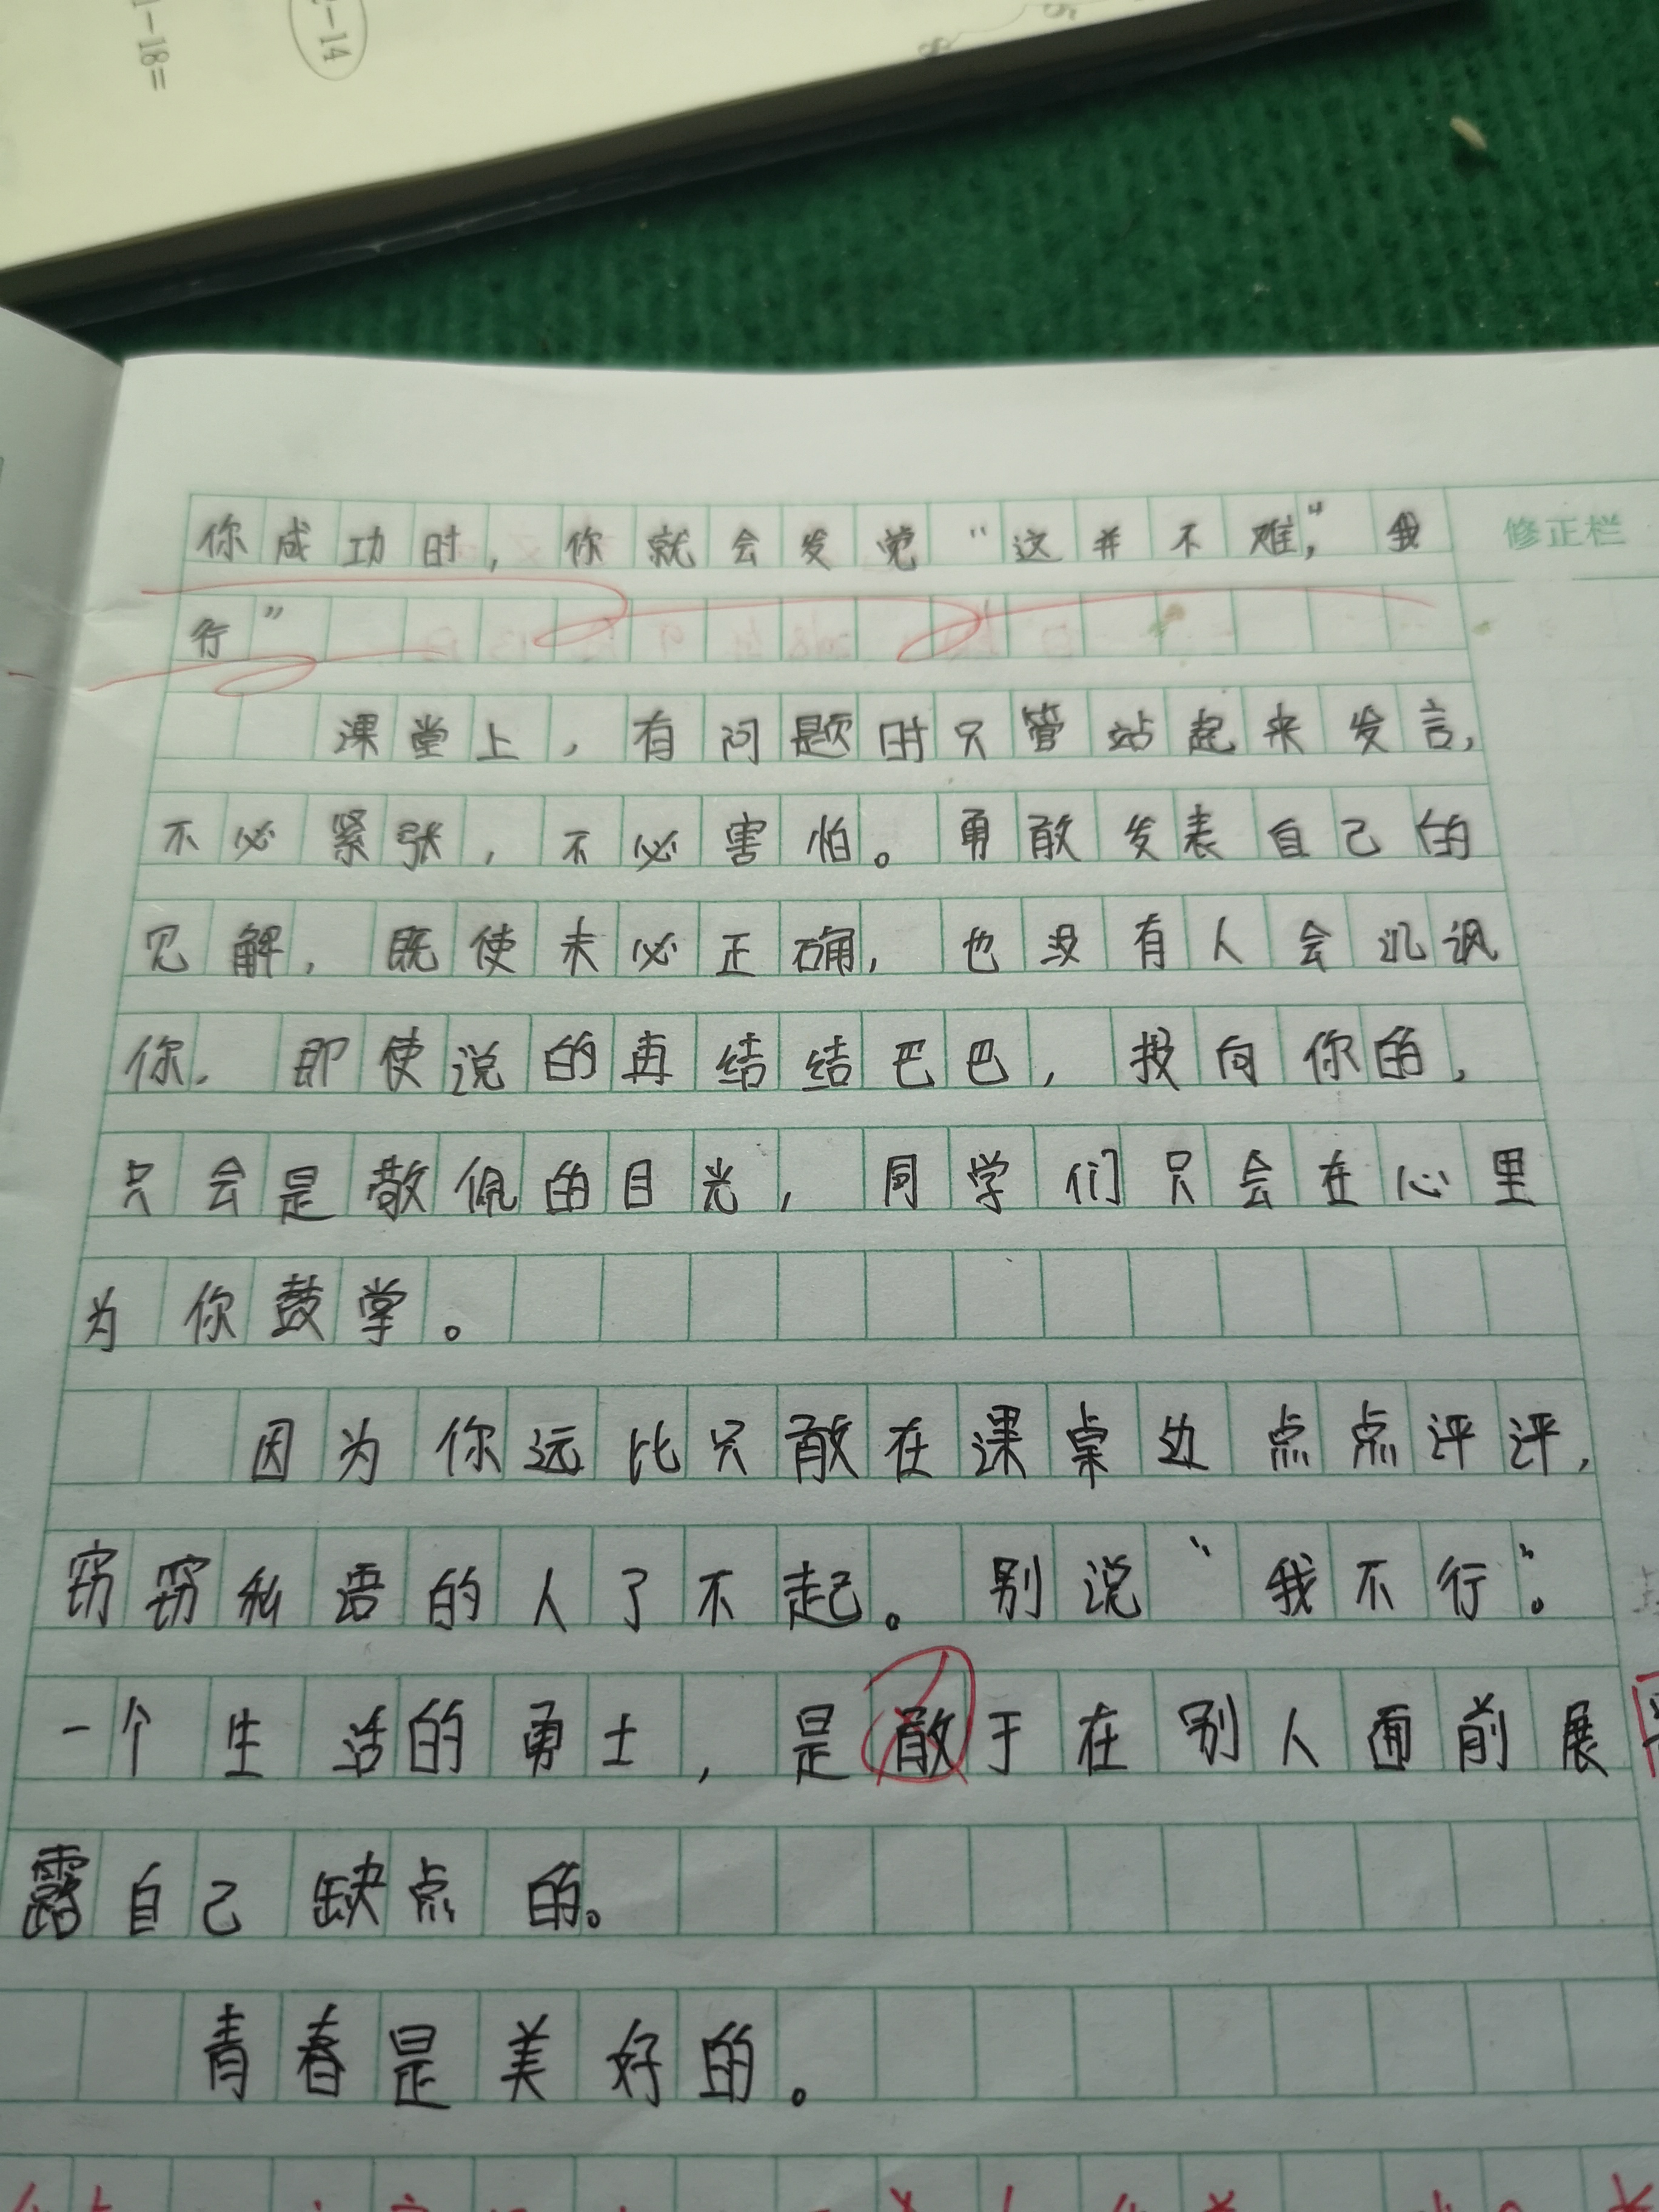 1-18=
2-14
你成功时，你就会发觉“这并不难，”我
修正栏
行”
课堂上，有问题时只管站起来发言，
不必紧张，不必害怕。勇敢发表自己的
见解，既使未必正确，也没有人会讥讽
你，即使说的再结结巴巴，投向你的，
只会是敬佩的目光，同学们只会在心里
为你鼓掌。
因为你远比只敢在课桌边点点评评，
窃窃私语的人了不起。别说“我不行”。
一个生活的勇士，是敢于在别人面前展
露自己缺点的。
青春是美好的。